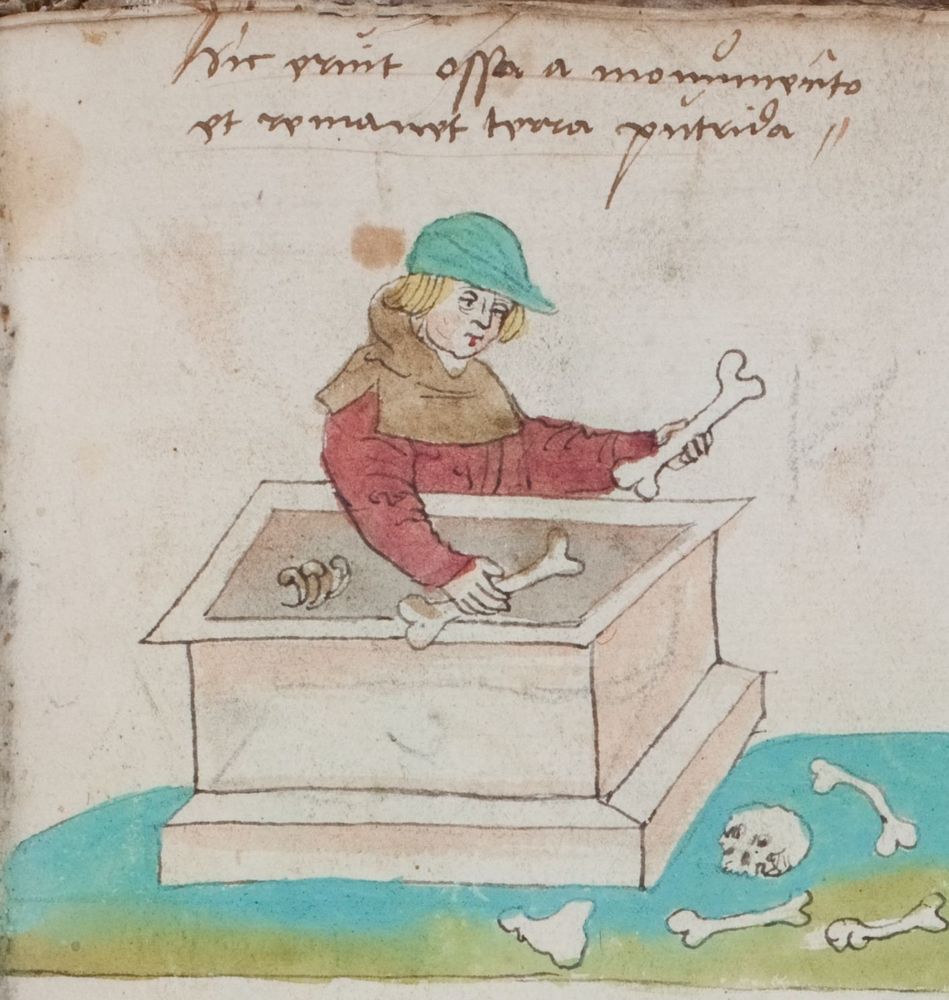 hic eruit ossa a monumento
et remanet terra putrida //